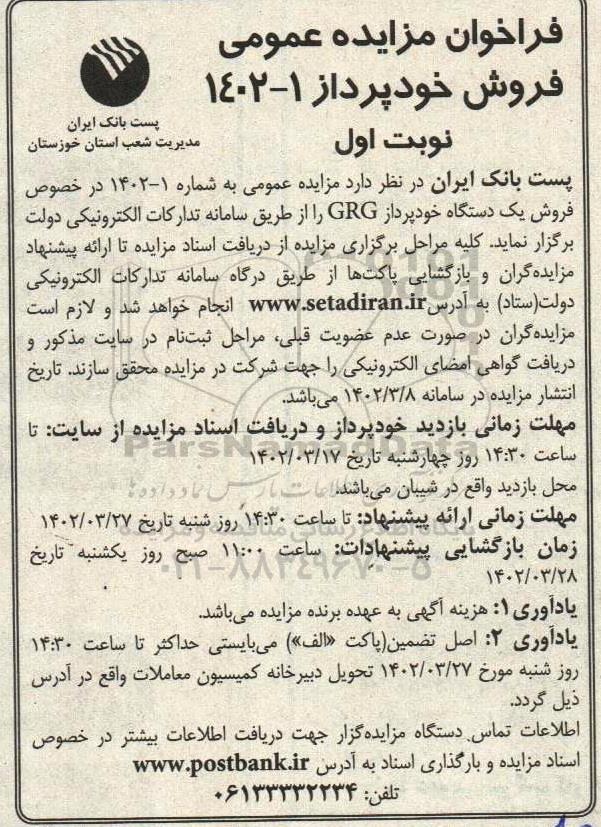 فراخوان مزایده عمومی
فروش خودپرداز ۱-۱۴۰۲
نوبت اول
پست بانک ایران
مدیریت شعب استان خوزستان
پست بانک ایران در نظر دارد مزایده عمومی به شماره ۱-۱۴۰۲ در خصوص
فروش یک دستگاه خودپرداز GRG را از طریق سامانه تدارکات الکترونیکی دولت
برگزار نماید. کلیه مراحل برگزاری مزایده از دریافت اسناد مزایده تا ارائه پیشنهاد
مزایده‌گران و بازگشایی پاکت‌ها از طریق درگاه سامانه تدارکات الکترونیکی
دولت(ستاد) به آدرس www.setadiran.ir انجام خواهد شد و لازم است
مزایده‌گران در صورت عدم عضویت قبلی، مراحل ثبت‌نام در سایت مذکور و
دریافت گواهی امضای الکترونیکی را جهت شرکت در مزایده محقق سازند. تاریخ
انتشار مزایده در سامانه ۱۴۰۲/۳/۸ می‌باشد.
مهلت زمانی بازدید خودپرداز و دریافت اسناد مزایده از سایت: تا
ساعت ۱۴:۳۰ روز چهارشنبه تاریخ ۱۴۰۲/۰۳/۱۷
محل بازدید واقع در شیبان می‌باشد.
مهلت زمانی ارائه پیشنهاد: تا ساعت ۱۴:۳۰ روز شنبه تاریخ ۱۴۰۲/۰۳/۲۷
زمان بازگشایی پیشنهادات: ساعت ۱۱:۰۰ صبح روز یکشنبه تاریخ
۱۴۰۲/۰۳/۲۸
یادآوری ۱: هزینه آگهی به عهده برنده مزایده می‌باشد.
یادآوری ۲: اصل تضمین(پاکت «الف») می‌بایستی حداکثر تا ساعت ۱۴:۳۰
روز شنبه مورخ ۱۴۰۲/۰۳/۲۷ تحویل دبیرخانه کمیسیون معاملات واقع در آدرس
ذیل گردد.
اطلاعات تماس دستگاه مزایده‌گزار جهت دریافت اطلاعات بیشتر در خصوص
اسناد مزایده و بارگذاری اسناد به آدرس www.postbank.ir
تلفن: ۰۶۱۳۳۳۳۲۲۳۴
ParsNamadData
۰۲۱-۸۸۳۴۹۶۷۰-۵